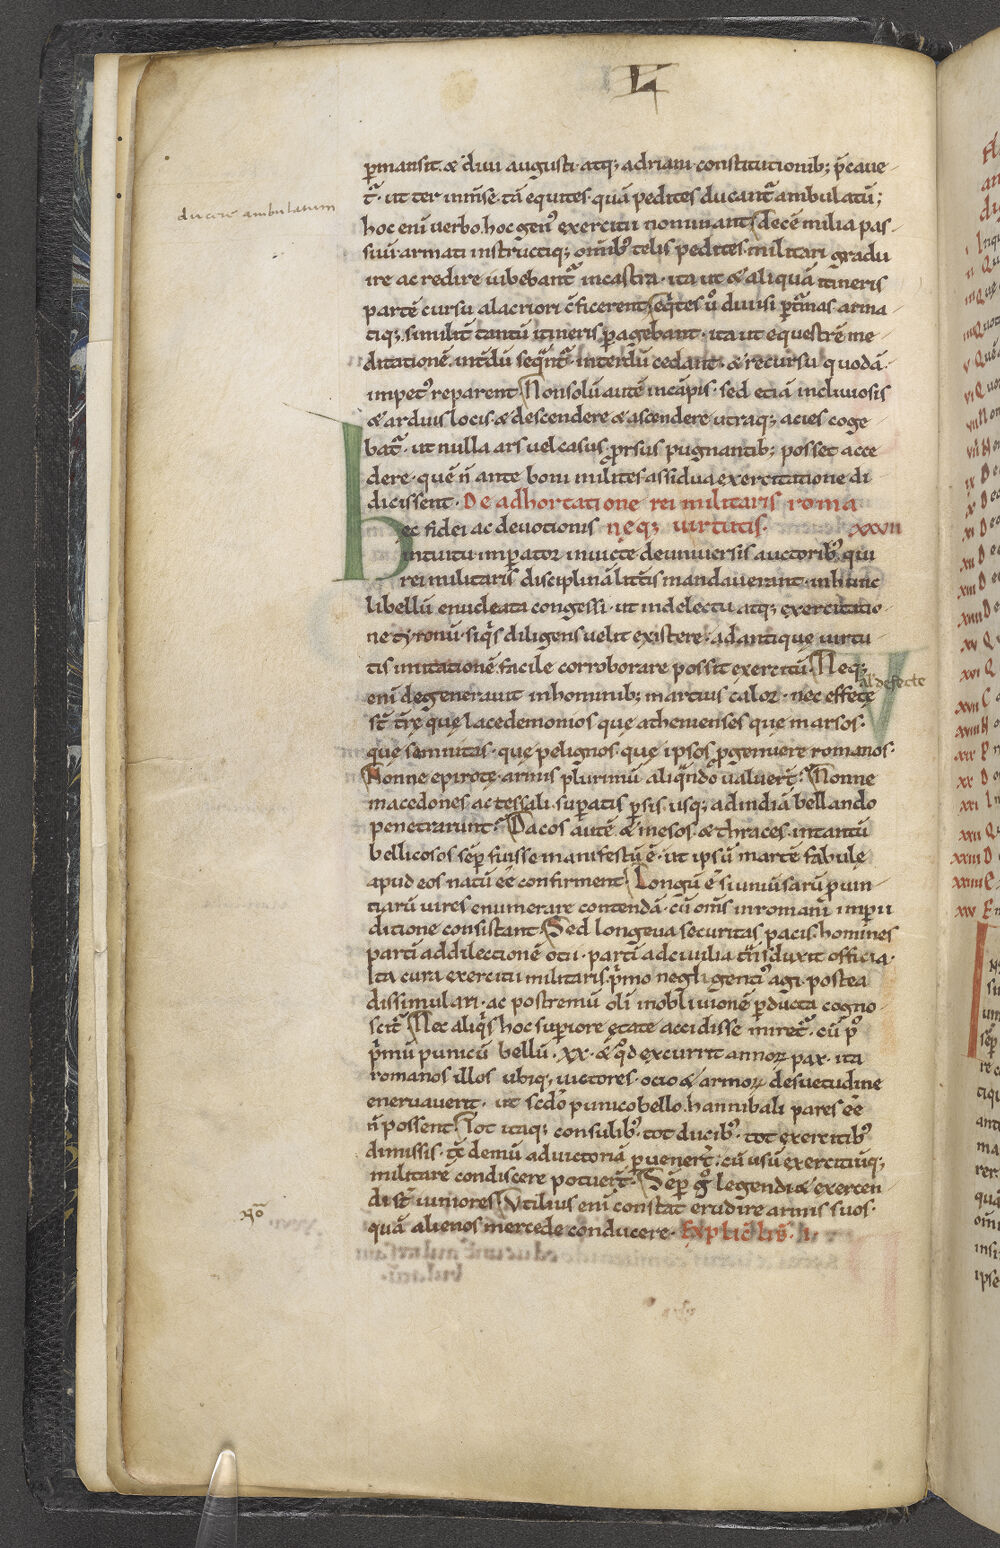 L
ducere ambulatum
ꝑmansit. & diui augusti. atq; adriani constitutionib; p̄caue-
t᷑. ut ter inm̄se. tā equites. quā pedites ducant᷑ ambulatū;
hoc enī uerbo. hoc genꝰ exercitii nominant. decē milia pas-
suū. armati instructiq; omībꝰ telis pedites. militari gradu
ire ac redire iubebant᷑ incastra. ita ut & aliquā itineris
partē cursu alacriori c̄ficerent. eq̇tes ů diuisi ꝑ t᷑mas. arma-
tiq; similit̄ tantū itineris ꝑagebant. ita ut equestrē me-
ditationē. int̄dū seq̄nt᷑. interdū cedant. & recursu quodā.
impetꝰ reparent. Nonsolū autē incāpis. sed etiā incliuiosis
& arduis locis. & descendere & ascendere utraq; acies coge-
bat᷑. ut nulla ars uel casus. ꝓrsus pugnantib; posset acce-
dere. quē n̄ ante boni milites assidua exercitatione di-
dicissent. De adhortatione rei militaris roma
hec fidei ac deuotionis neq; uirtutis. xxvii
intuitu imꝑator inuicte deuniuersis auctoribꝰ. qui
rei militaris disciplinā litt̄is mandauerant. inhunc
libellū enucleata congessi. ut indelectu atq; exercitatio-
ne tyronū. siq̇s diligens uelit existere. ad antique uirtu-
tis imitationē. facile corroborare possit exercitū. Neq;
al' defecte
enī degenerauit inhominib; martius calor. nec effetę
st̄ tr̄ę. quę lacedemonios quę athenienses quę marsos.
quę samnitas. quę pelignos. quę ipsos ꝓgenuere romanos.
Nonne epirotę. armis plurimū aliq̄ndo ualuer̄t? Nonne
macedones ac tessali. suꝑatis ꝑsis. usq; ad indiā bellando
penetrarunt? Dacos autē & mesos. & thraces. intantū
bellicosos sēꝑ fuisse manifestū ē. ut ipsū martē fabulę
apud eos natū ēē confirment. Longū ē si uniūsarū ꝓuin-
tiarū uires enumerare contendā. cū om̄s inromani imꝑii
ditione consistant. Sed longeua securitas pacis. homines
partī addilectionē otii. partī adciuilia t̄nsduxit officia.
Ita cura exercitii militaris. p̄mo negligentiꝰ agi. postea
dissimulari. ac postremū olī inobliuionē ꝑducta cogno-
scit᷑. Nec aliq̇s hoc superiore ętate accidisse miret᷑. cū pꝰ
p̄mū punicū bellū. xx. & q̇d excurrit annoꝝ pax. ita
romanos illos ubiq; uictores. ocio & armoꝝ desuetudine
eneruauerit. ut sc̄do punico bello. hannibali pares ēē
n̄ possent. Tot itaq; consulibꝰ. tot ducibꝰ. tot exercitibꝰ
dimissis. tc̄ demū aduictoriā ꝑuener̄t. cū usū exercitiūq;
militare condiscere potuer̄t. Sēꝑ g̊ legendi & exercen-
di st̄ iuniores. Vtilius enī constat erudire armis suos.
Nō
quā alienos mercede conducere. Explic̄ lib̄. I.